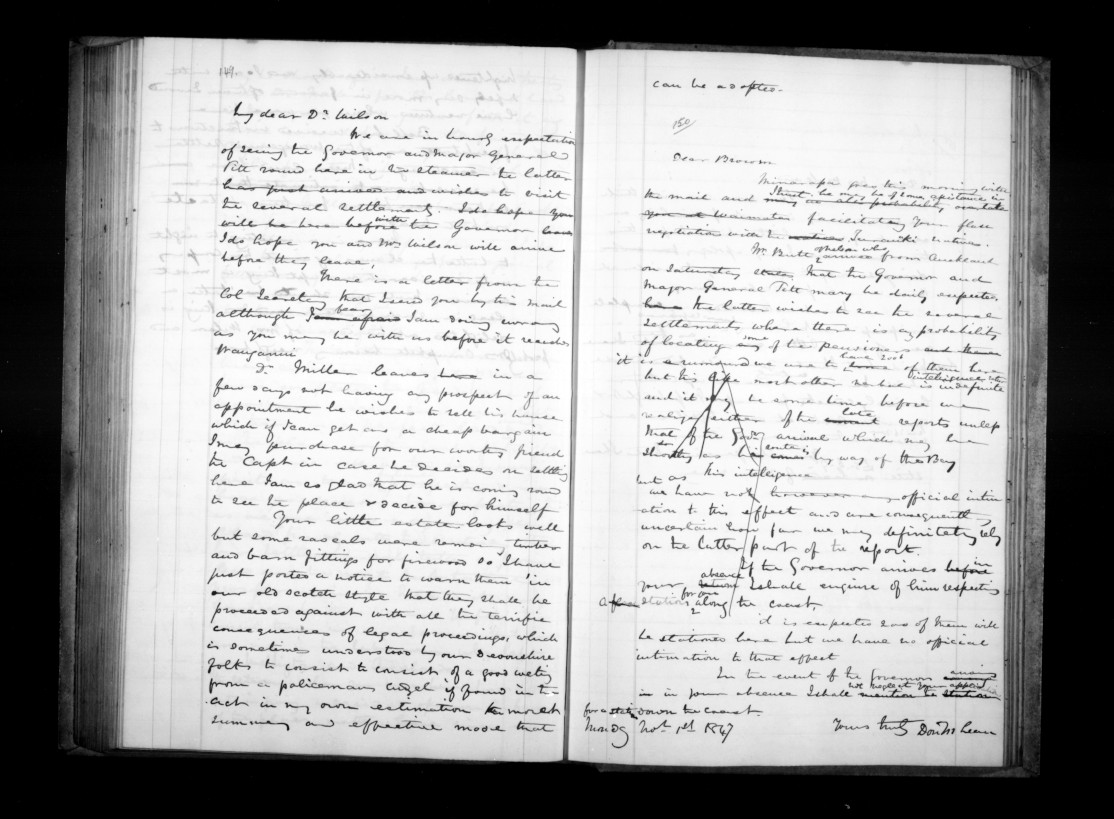 149.
My dear Dr. Wilson
We are in hourly expectation
of seeing the Governor and Major General
Pitt round here in the steamer the latter
has just arrived and wishes to visit
the several settlements. I do hope you
will be here before with the Governor leaves
I do hope you and Mrs Wilson will arrive
before they leave,
There is a letter from the
Col Secretary that I send you by this mail
although I am afraid bear I am doing wrong
as you may be with us before it reaches
Wanganui
Dr Miller leaves here in a
few days not having any prospect of an
appointment he wishes to sell his house
which if I can get as a cheap bargain
I may purchase for our worthy friend
the Capt in case he decides on settling
here I am so glad that he is coming round
to see the place & decide for himself
Your little estate looks well
but some rascals were removing timber
and barn fittings for firewood so I have
just posted a notice to warn them in
our old scotch style that they shall be
proceeded against with all the terrific
consequences of legal proceedings, which
is sometimes understood by our Devonshire
folks to consist to consist of a good
from a policemans if found in the
act in my own estimation the most
summary and effective mode that
can be adopted.
150
Dear Brown
Minarapa goes this morning with
the mail and I trust he may be of some assistance in
may at all probability
you at Waimate facilitating your
negotiation with the natives Taranaki natives.
Mr. Butt & who arrived from Auckland
on Saturday states, that the Governor and
Major General Pitt may be daily expected
here the latter wishes to see the several
settlements where there is a probability
of locating any some of the pensioners and
it is rumoured we are to have 200 of them here
but this like most other is indefinite
and it may be some time before we
realize either of the current late reports unless
that of the Govrs arrival which may be
so shortly as he comes by way of the Bay
but as this intelligence
we have not however any official intim-
ation to this effect and are consequently
uncertain how far we may definitely rely
on the latter part of the report.
If the Governor arrives before in
your return absence I shall enquire of him respecting
a station for one along the coast,
it is expected 200 of them will
be stationed here but we have no official
intimation to that effect
In the event of the Governors arriving
in in your absence I shall not neglect your
mention the station
for a station down the coast.
Monday Novr. 1st 1847
Yours truly Don. McLean